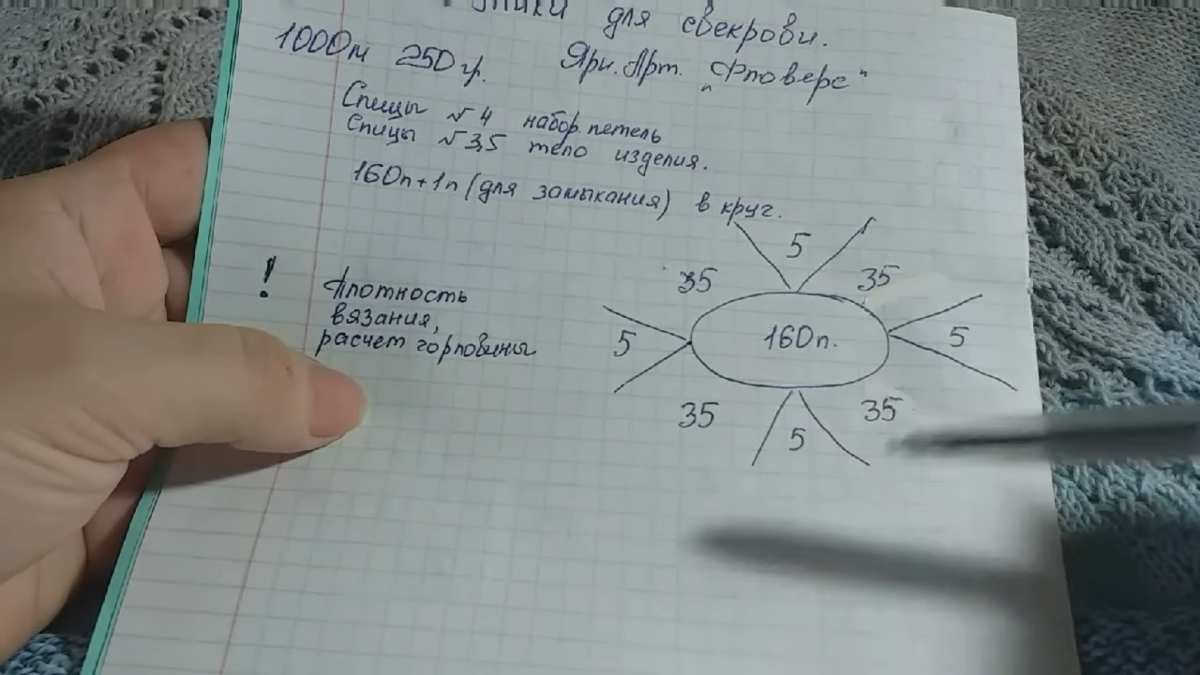 для свекрови.
1000м 250гр. Ярн.Арт. „Фловерс"
Спицы №4 набор.петель
Спицы №3,5 тело изделия.
160п+1п (для замыкания) в круг.
5
35 35
! Плотность вязания, расчет горловины
5 160п. 5
35 35
5